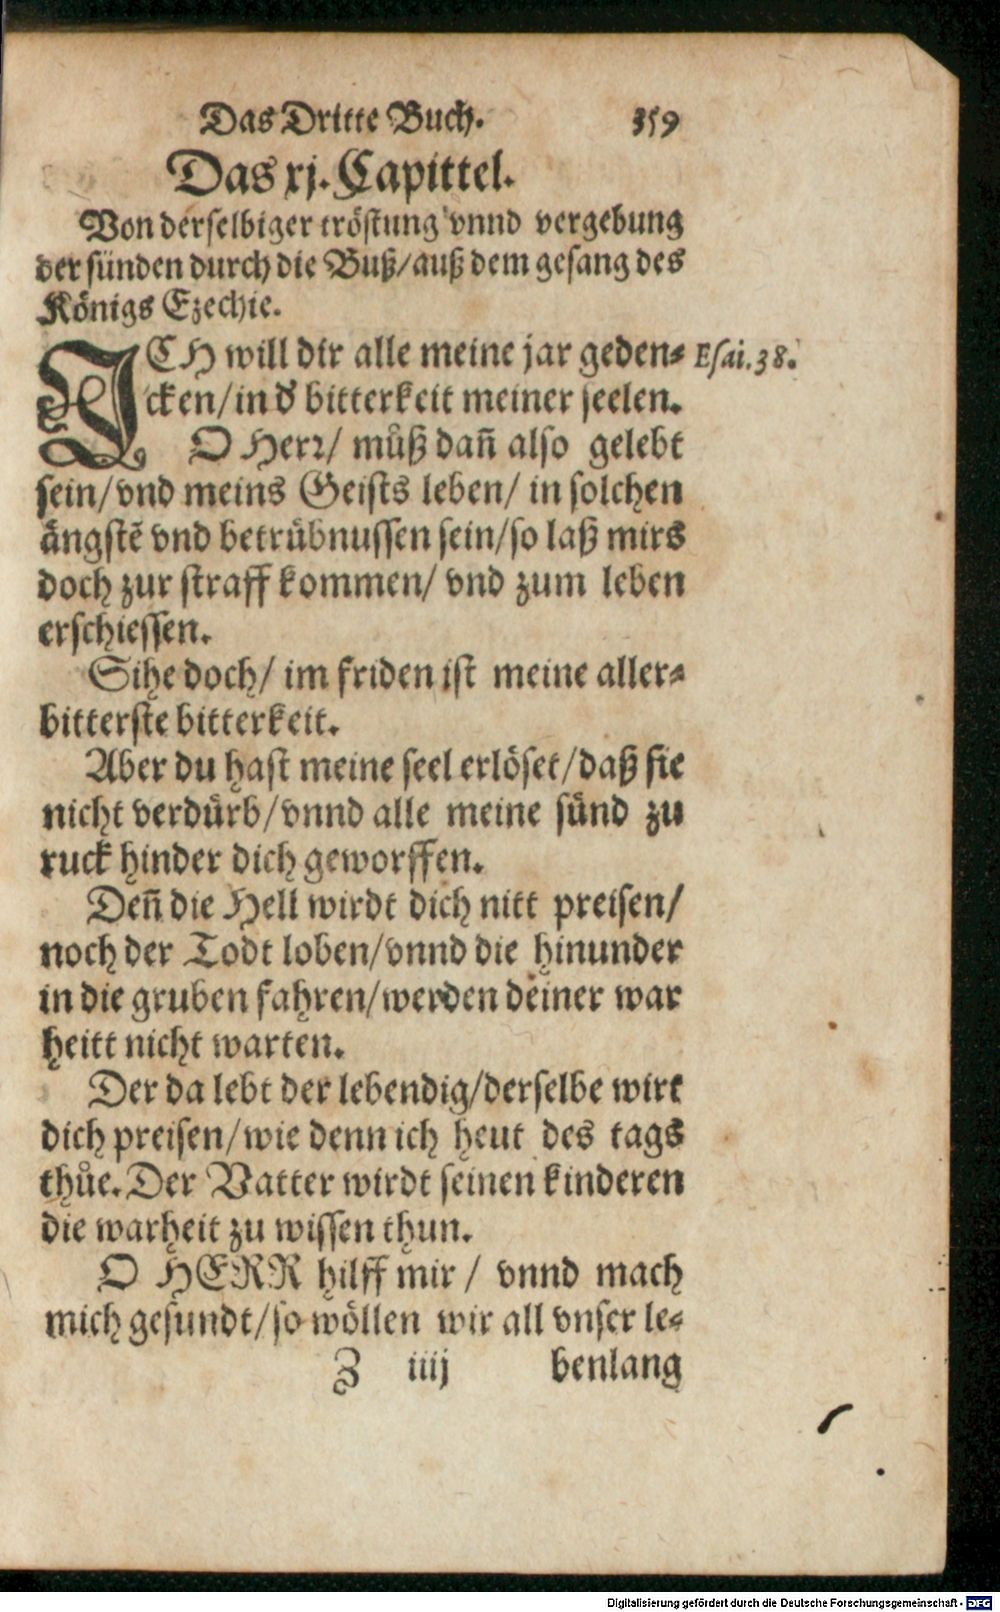 Das Dritte Buch. 359
Das xj. Capittel.
Von derselbiger tröstung vnnd vergebung
der sünden durch die Buß/auß dem gesang des
Königs Ezechie.
ICH will dir alle meine jar geden⸗ Esai.38.
cken/in d' bitterkeit meiner seelen.
O Herr/ můß dañ also gelebt
sein/vnd meins Geists leben/ in solchen
ängstẽ vnd betrübnussen sein/so laß mirs
doch zur straff kommen/ vnd zum leben
erschiessen.
Sihe doch/ im friden ist meine aller⸗
bitterste bitterkeit.
Aber du hast meine seel erlöset/daß sie
nicht verdürb/vnnd alle meine sünd zu
ruck hinder dich geworffen.
Deñ die Hell wirdt dich nitt preisen/
noch der Todt loben/vnnd die hinunder
in die gruben fahren/werden deiner war
heitt nicht warten.
Der da lebt der lebendig/derselbe wirt
dich preisen/wie denn ich heut des tags
thůe. Der Vatter wirdt seinen kinderen
die warheit zu wissen thun.
O HERR hilff mir / vnnd mach
mich gesundt/so wöllen wir all vnser le⸗
Z iiij benlang
Digitalisierung gefördert durch die Deutsche Forschungsgemeinschaft - DFG